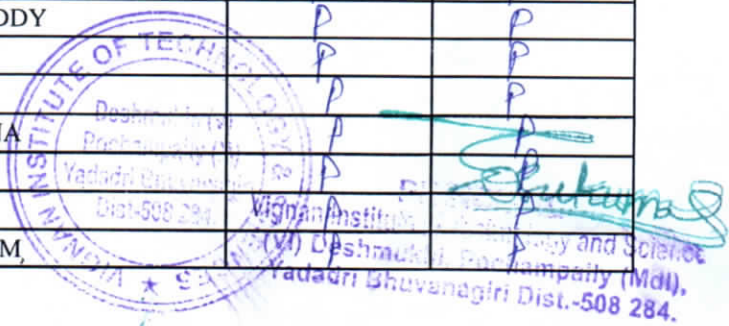 DDY P P
P P
P P
NA P P
P P
P P
M, P P
VIGNAN INSTITUTE OF TECHNOLOGY &
Deshmukhi (V)
Pochampally (M)
Yadadri
Dist-508 284.
Vignan Institute of and Science
(Vi) Deshmukhi, Pochampally (Mdl),
Yadadri Bhuvanagiri Dist.-508 284.